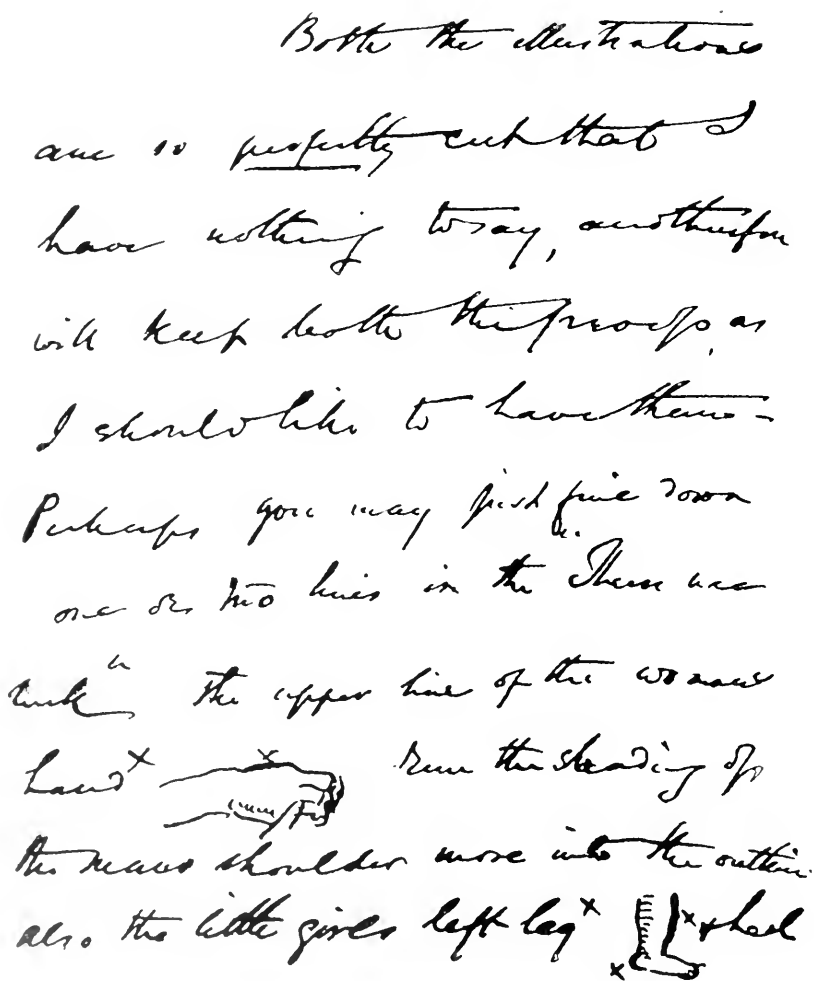 Both the illustrations
are so perfectly cut that I
have nothing to say, and therefore
will keep both the proofs, as
I should like to have them –
Perhaps you may just fine down
one or two lines in the "There was
luck" the upper line of the womans
hand x x Run the shading of
the mans shoulder more into the outline
also the little girls left leg x x + heel
x